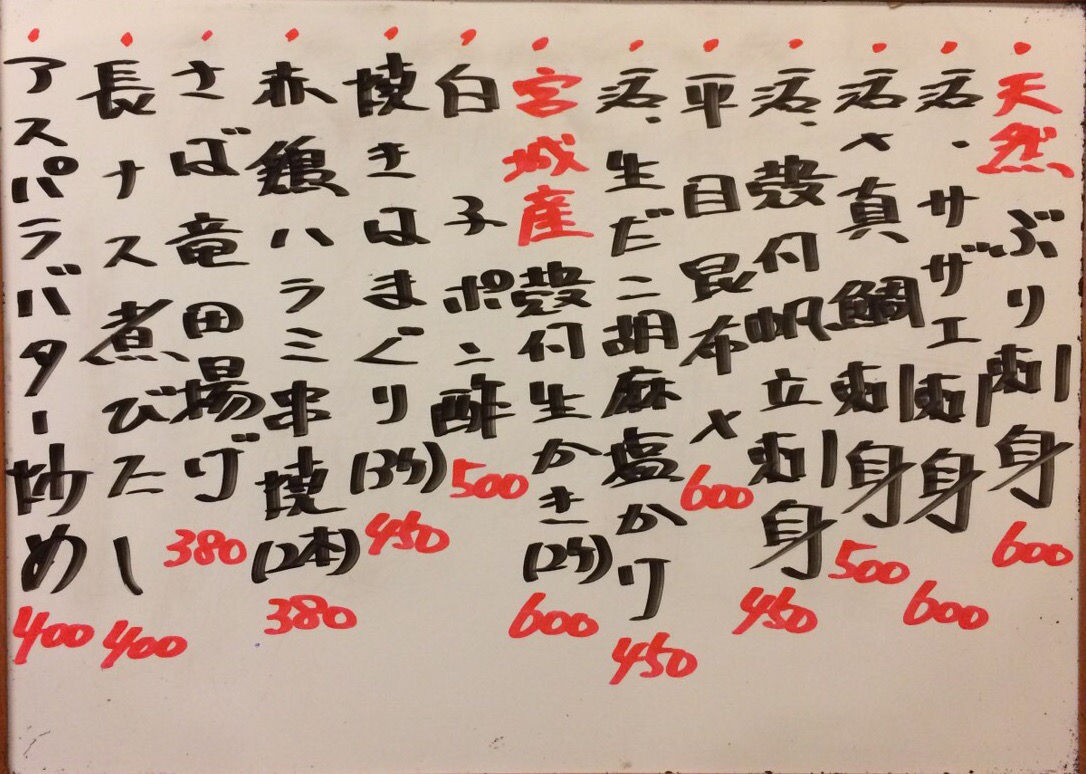 ・天然ぶり刺身 600
・活・サザエ刺身 600
・活〆真鯛刺身 500
・活・殻付帆立刺身 450
・平目昆布〆 600
・活・生だこ胡麻塩かけ 450
・宮城産殻付生かき(2ケ) 600
・白子ポン酢 500
・焼きはまぐり(3ケ) 450
・赤鶏ハラミ串焼(2本) 380
・さば竜田揚げ 380
・長ナス煮びたし 400
・アスパラバター炒め 400